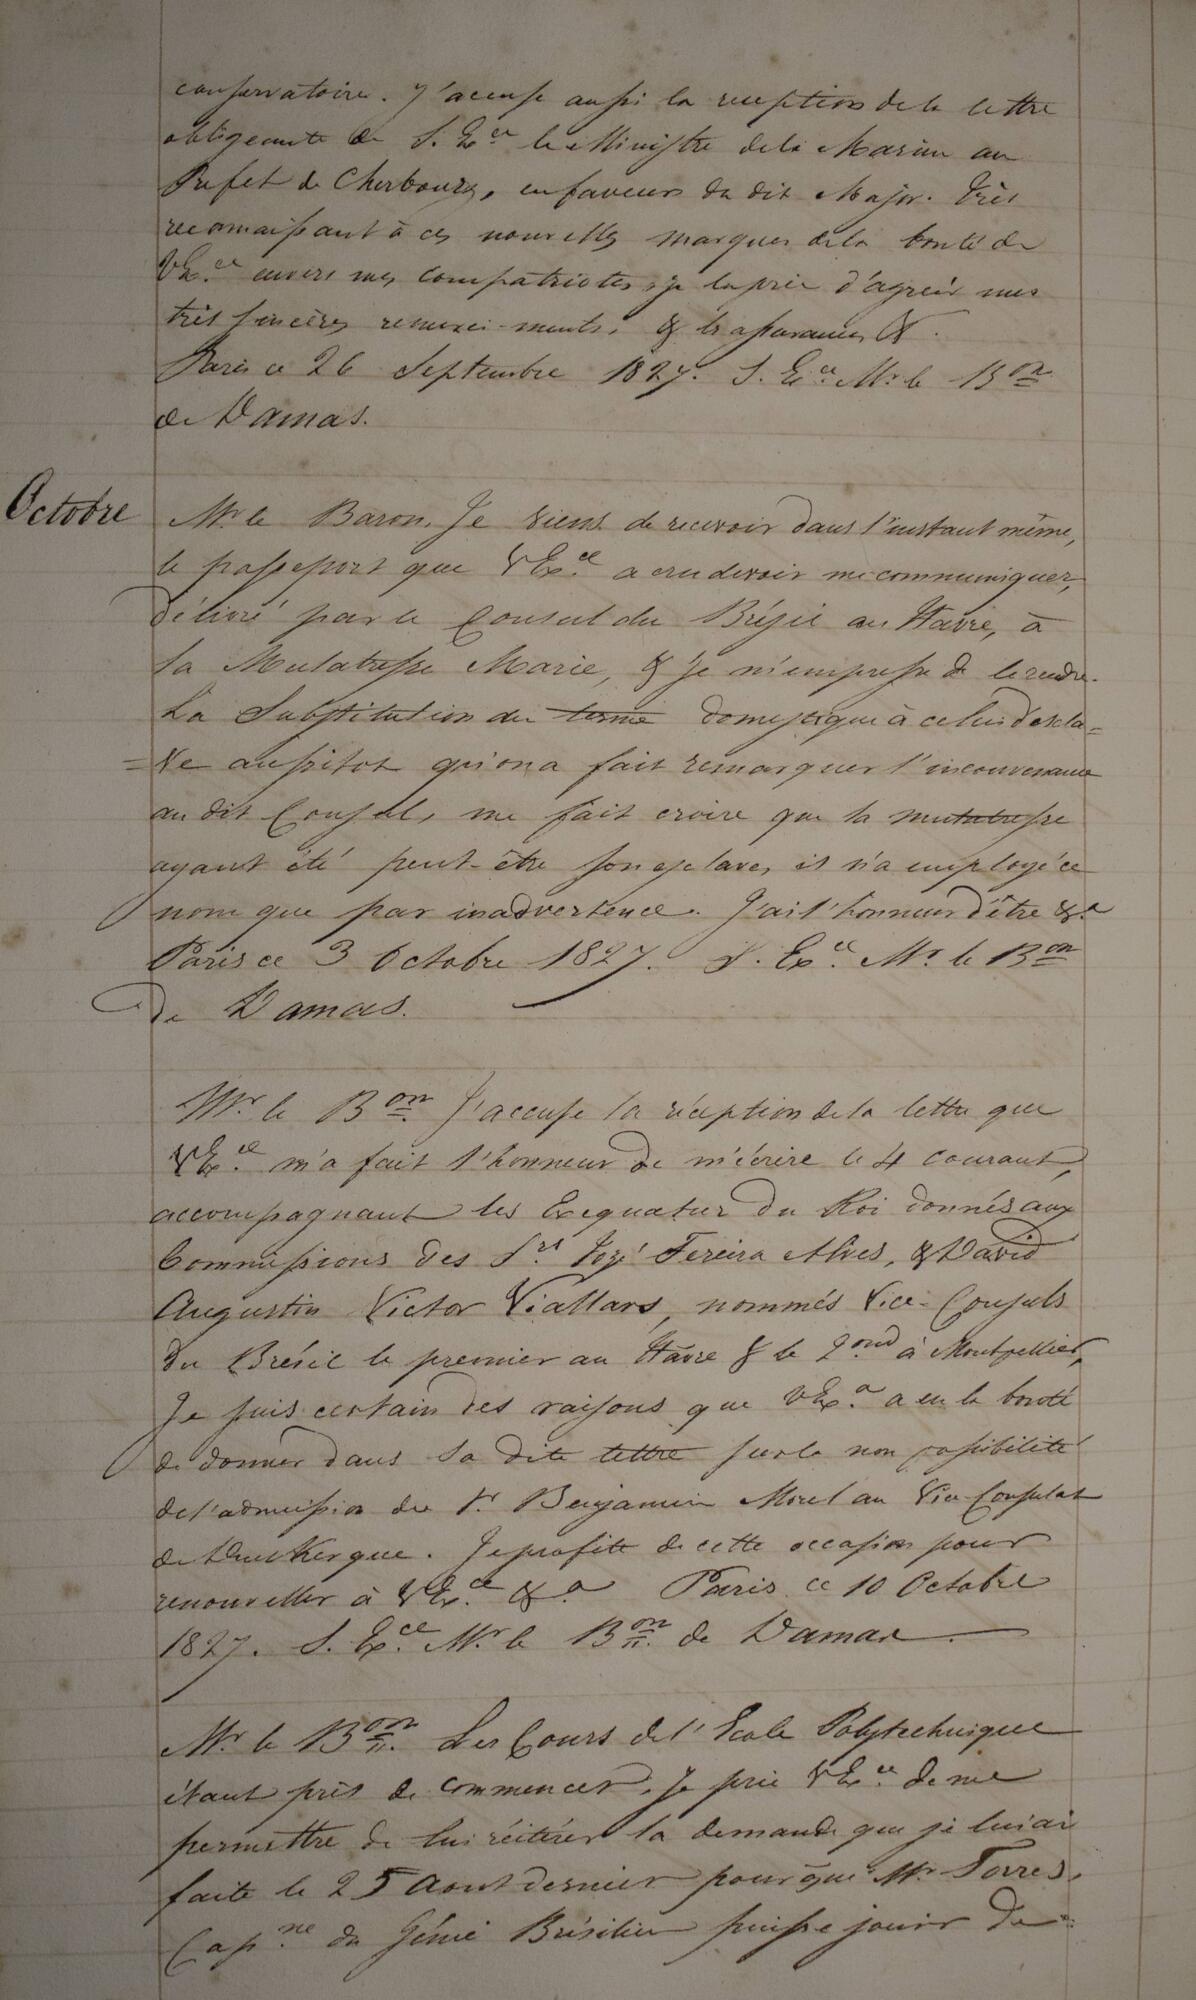 conservatoire. J'accuse aussi la reception de la lettre
obligeante de S. Ex.ce le Ministre de la Marine au
Prefet de Cherbourg, en faveur du dit Major. Très
reconnaissant à ces nouvelles marques de la bonté de
V Ex.ce envers mes compatriotes, je la prie d'agréér mes
très sincères remerciments, & les assurances &.
Paris ce 26 Septembre 1827. S. Ex.ce Mr. le Bon
de Damas.
Octobre
Mr. le Baron, Je viens de recevoir dans l'instant même,
le passeport que V Ex.ce a cru devoir me communiquer,
délivré par le Consul du Brésil au Havre, à
la Mulatresse Marie, & je m'empresse de le rendre.
La Substitution du terme domestique à celui d'escla=
=ve aussitot qu'on a fait remarquer l'inconvenance
au dit Consul, me fait croire que la mulatresse
ayant été peut-être son esclave, il n'a employé ce
nom que par inadvertence. J'ai l'honneur d'être &.a
Paris ce 3 Octobre 1827. S. Ex.ce Mr. le Bon
de Damas.
Mr. le Bon. J'accuse la réception de la lettre que
V Ex.ce m'a fait l'honneur de m'écrire le 4 courant,
accompagnant les Exequatur du Roi donnés aux
Commissions des Srs. José Fereira Alves, & David
Augustin Victor Viallars, nommés Vice-Consuls
du Brésil le premier au Havre & le 2ond à Montpellier,
Je suis certain des raisons que V Ex.a a eu la bonté
de donner dans sa dite lettre sur la non possibilité
de l'admission du Sr. Benjamin Morel au Vice-Consulat
de Dunkerque. Je profite de cette occasion pour
renouveller à V Ex.ce &.a Paris ce 10 Octobre
1827. S. Ex.ce Mr. le Bon. de Damas.
Mr. le Bon. Les Cours de l'Ecole Polytechnique
étant près de commencer, je prie V Ex.ce de me
permettre de lui réitérer la demande que je lui ai
faite le 25 Aout dernier pour que Mr. Torres,
Cap.ne du Génie Brésilien puisse jouir de